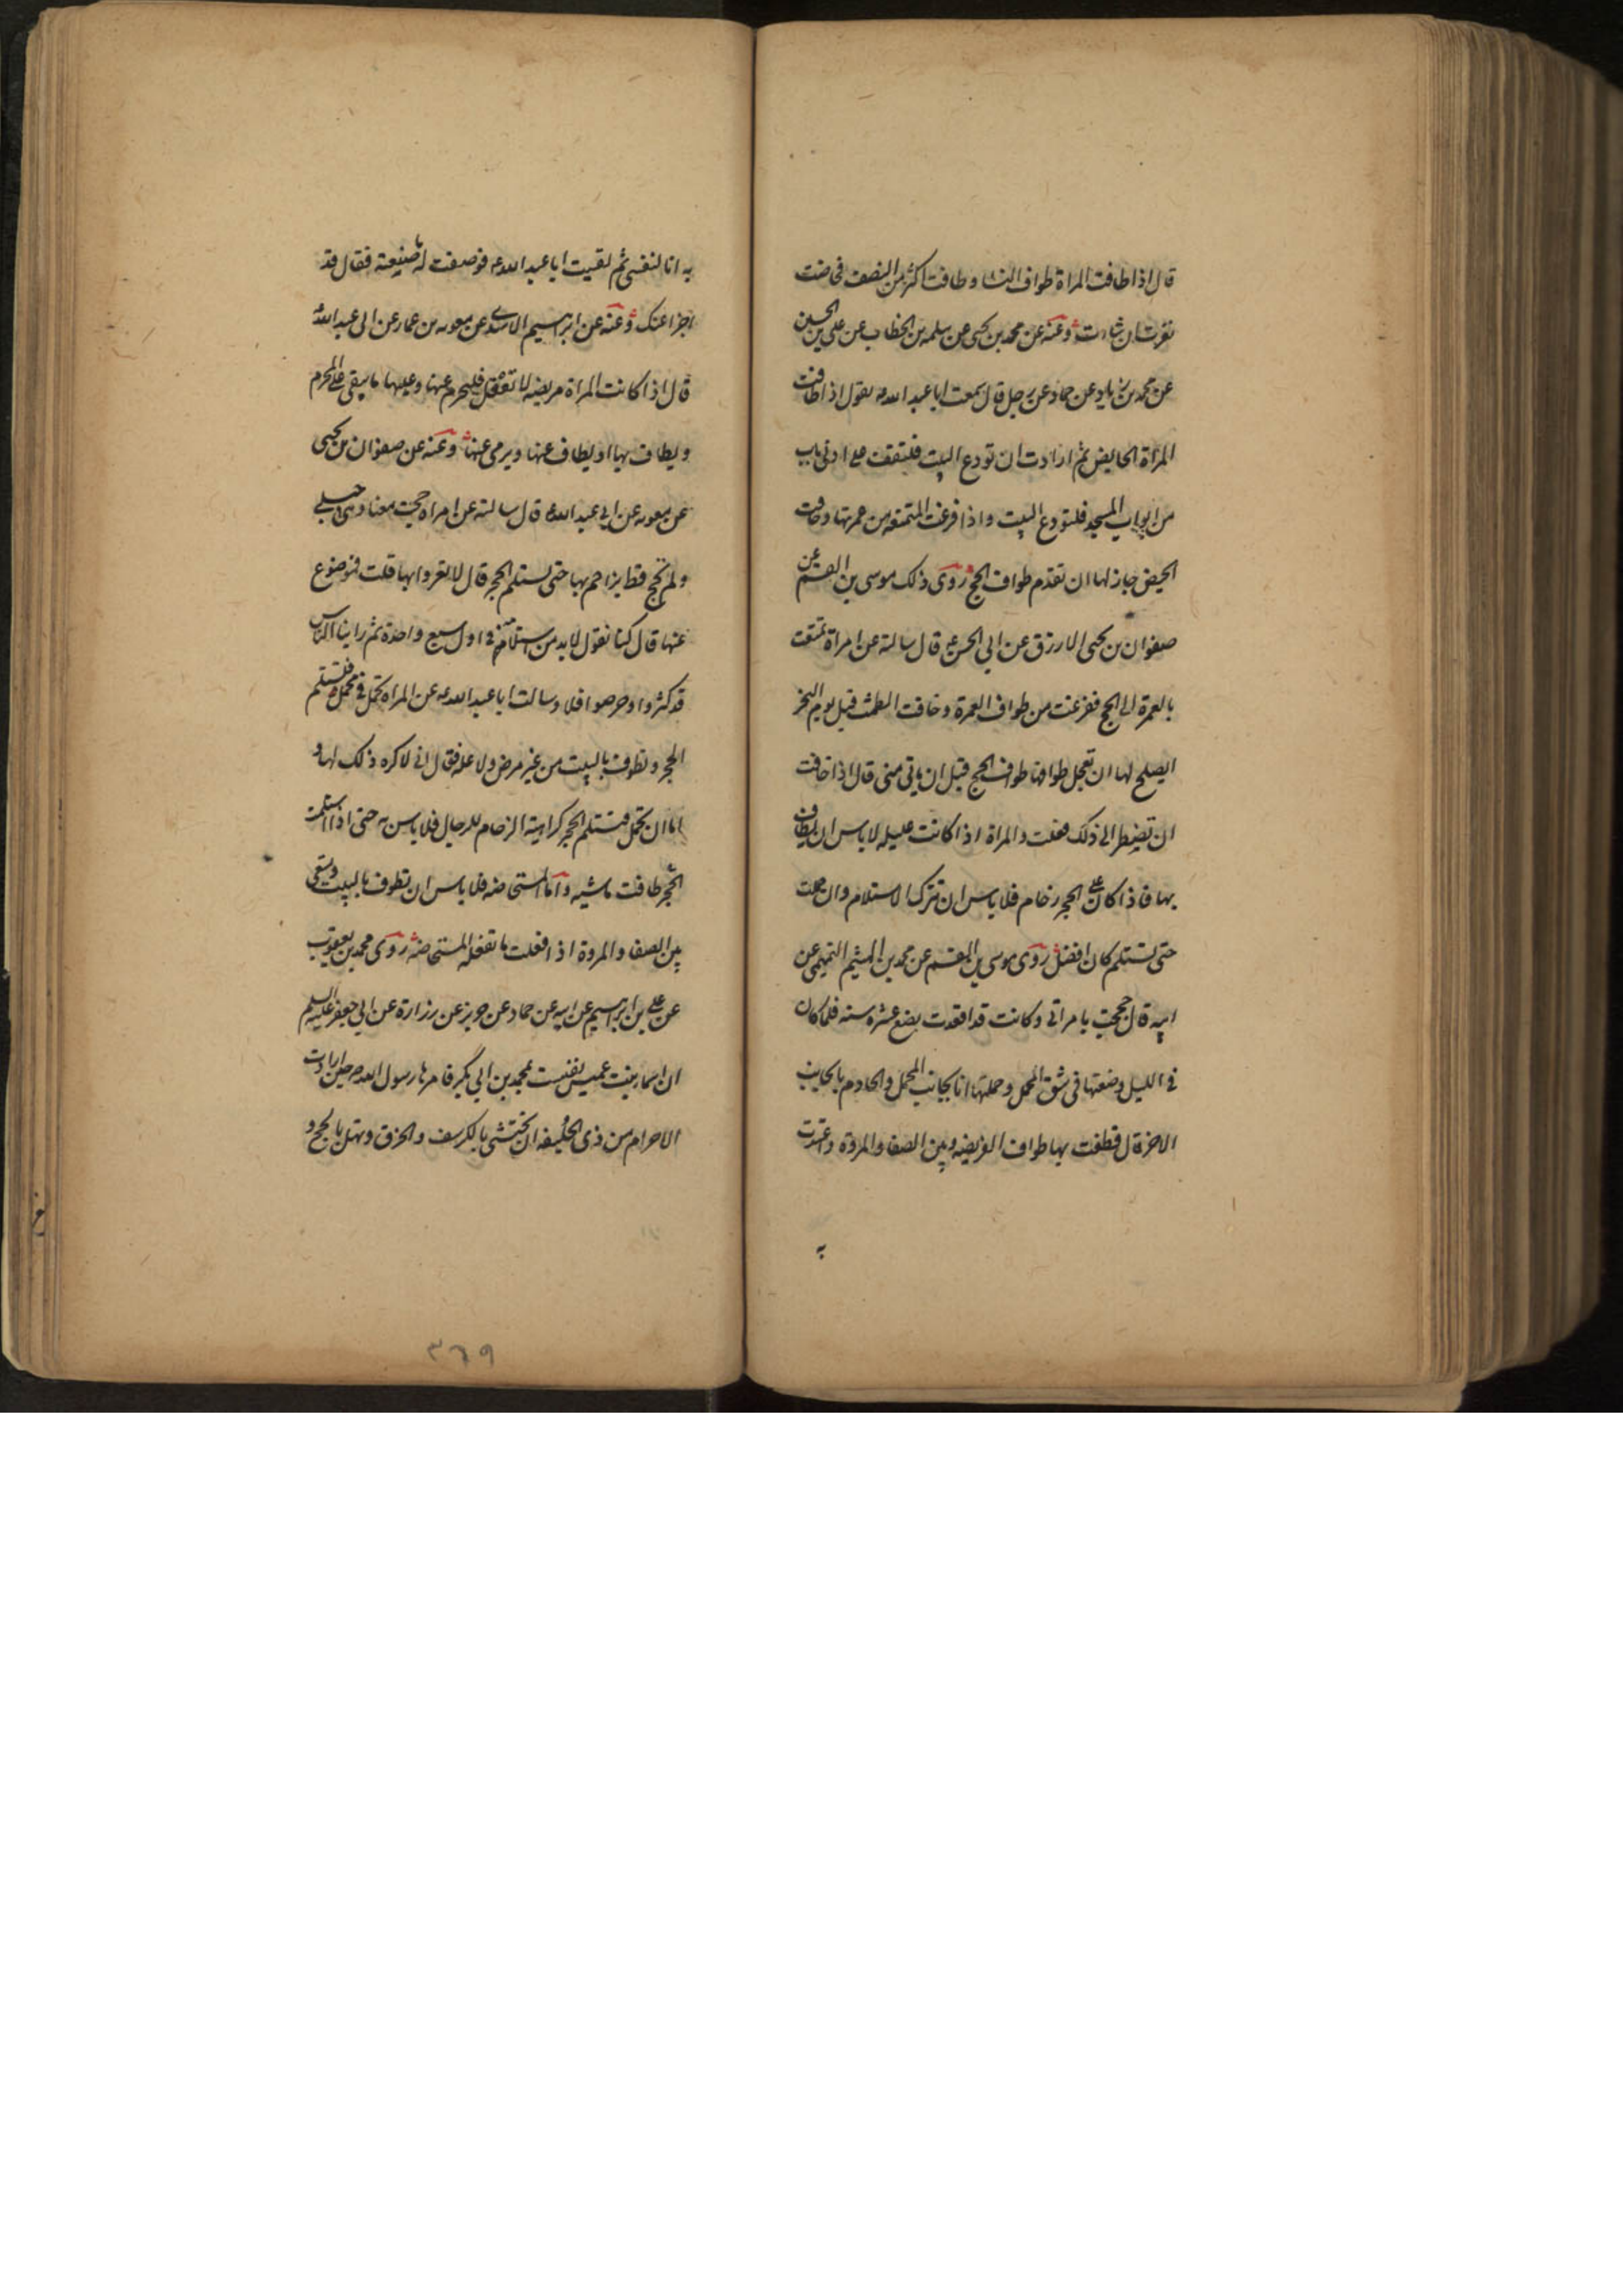 قال اذا طافت المراة طواف النسا و طافت اكثر من النصف فحاضت
نفرت ان شاءت وعنه عن محمد بن يحيى عن سلمه بن الخطاب عن علي بن الحسن
عن محمد بن زياد عن حماد عن رجل قال سمعت ابا عبد الله ع يقول اذا طافت
المراة الحايض ثم ارادت ان تودع البيت فلتقف على ادنى باب
من ابواب المسجد فلتودع البيت واذا فرغت المتمتعه من عمرتها وخافت
الحيض جاز لها ان تقدم طواف الحج روى ذلك موسى بن القسم عن
صفوان بن يحيى الازرق عن ابي الحسن ع قال سالته عن امراة تمتعت
بالعمرة الى الحج ففرغت من طواف العمرة وخافت الطمث قبل يوم النحر
ايصلح لها ان تعجل طوافها طواف الحج قبل ان ياتي منى قال اذا خافت
ان تضطر الى ذلك فعلت والمراة اذا كانت عليله لا باس ان يطاف
بها فاذا كان على الحجر زحام فلا باس ان تترك الاستلام وان حملت
حتى تستلم كان افضل روى موسى بن القسم عن محمد بن الهيثم التميمي عن
ابيه قال حججت بامراتي وكانت قد اقعدت بضع عشره سنه فلما كان
في الليل وضعتها في شق المحمل وحملتها انا بجانب المحمل والخادم بالجانب
الاخر قال فطفت بها طواف الفريضه وبين الصفا والمروة واعتددت
به
به انا لنفسي ثم لقيت ابا عبد الله ع فوصفت له ما صنيعته فقال قد
اجزا عنك وعنه عن ابرهيم الاسدي عن معويه بن عمار عن ابي عبد الله ع
قال اذا كانت المراة مريضه لا تعقل فليحرم عنها وعليها ما يتقى على المحرم
ويطاف بها او يطاف عنها ويرمى عنها وعنه عن صفوان بن يحيى
عن معويه عن ابي عبد الله ع قال سالته عن امراه حجت معنا وهي حبلى
ولم تحج قط يزاحم بها حتى تستلم الحجر قال لا تغروا بها قلت فموضوع
عنها قال كنا نقول لا بد من استلامه في اول سبع واحدة ثم راينا الناس
قد كثروا وحرصوا فلا وسالت ابا عبد الله ع عن المراه تحمل في محمل فتستلم
الحجر وتطوف بالبيت من غير مرض ولا علة فقال اني لاكره ذلك لها و
اما ان تحمل فتستلم الحجر كراهية الزحام للرجال فلا باس به حتى اذا استلمت
الحجر طافت ماشيه واما المستحاضه فلا باس ان تطوف بالبيت وتسعى
بين الصفا والمروة اذا فعلت ما تفعله المستحاضه روى محمد بن يعقوب
عن علي بن ابرهيم عن ابيه عن حماد عن حريز عن زرارة عن ابي جعفر عليه السلم
ان اسما بنت عميس نفست بمحمد بن ابي بكر فامرها رسول الله ص حين ارادت
الاحرام من ذي الحليفه ان تحتشي بالكرسف والخرق وتهل بالحج و
٣٦٩